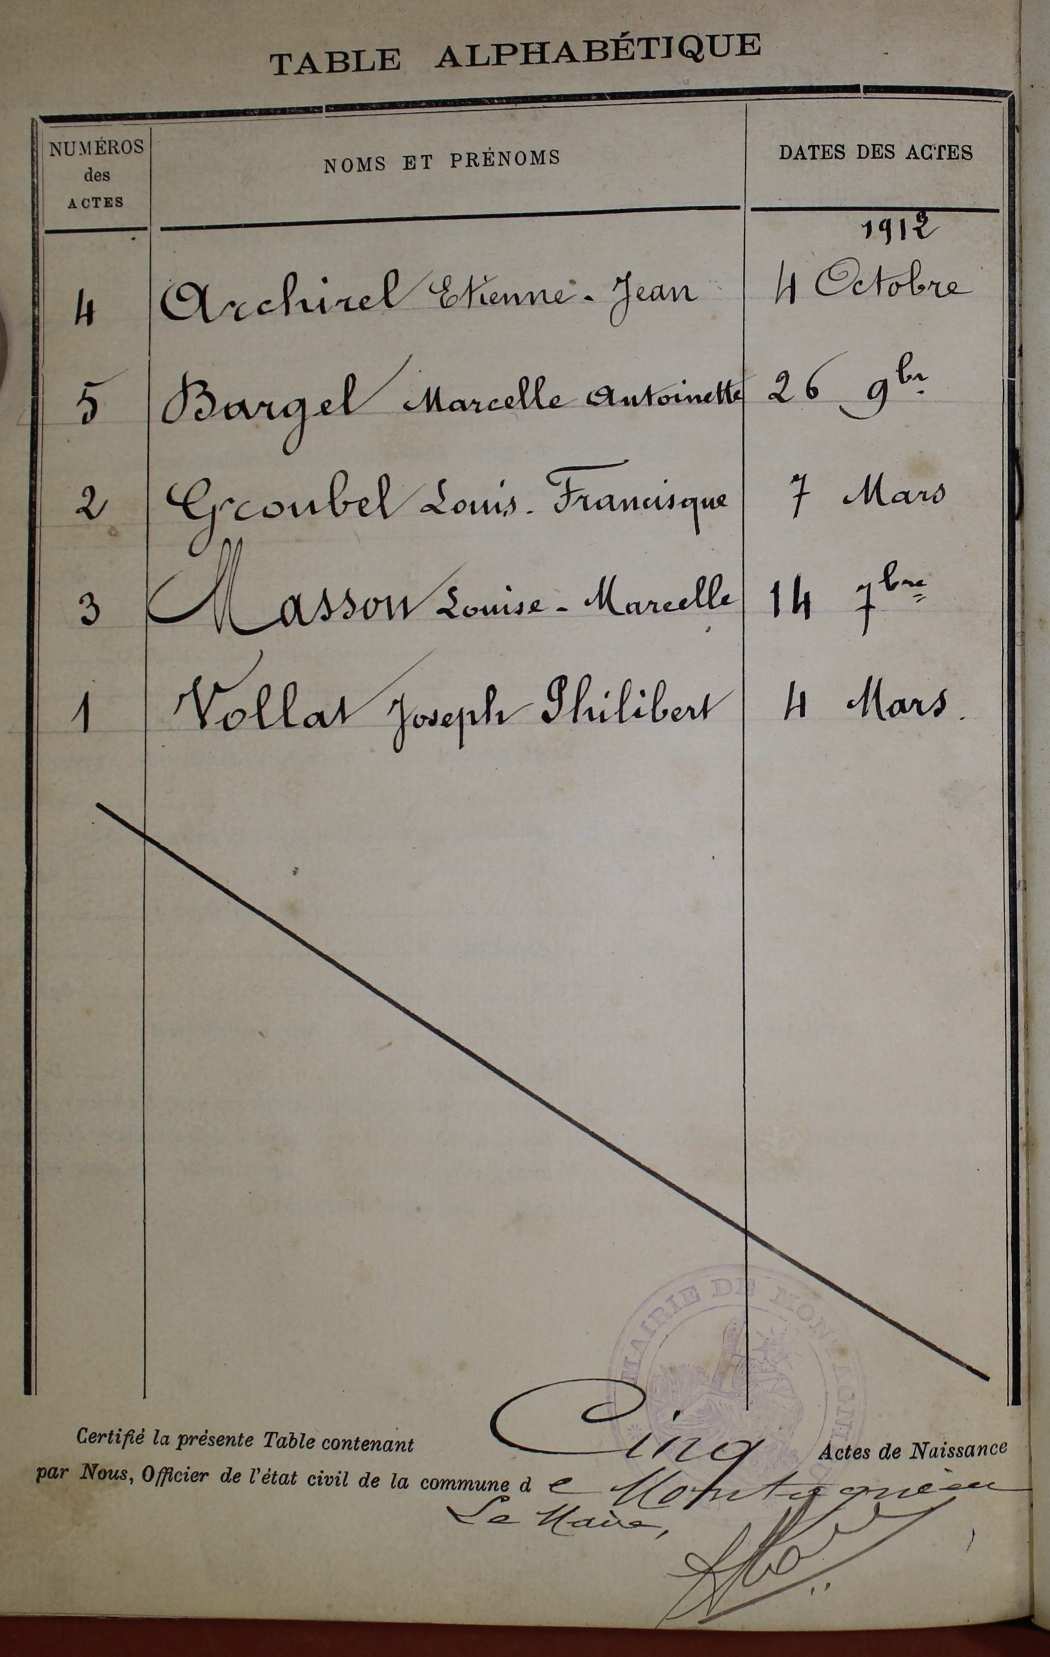 TABLE ALPHABÉTIQUE
NUMÉROS des ACTES NOMS ET PRÉNOMS DATES DES ACTES
1912
4 Archirel Etienne - Jean 4 Octobre
5 Bargel Marcelle Antoinette 26 9bre
2 Groubel Louis - Francisque 7 Mars
3 Masson Louise - Marcelle 14 7bre
1 Vollat Joseph Philibert 4 Mars.
MAIRIE DE
Certifié la présente Table contenant Cinq Actes de Naissance
par Nous, Officier de l'état civil de la commune de Montagnieu
Le Maire,